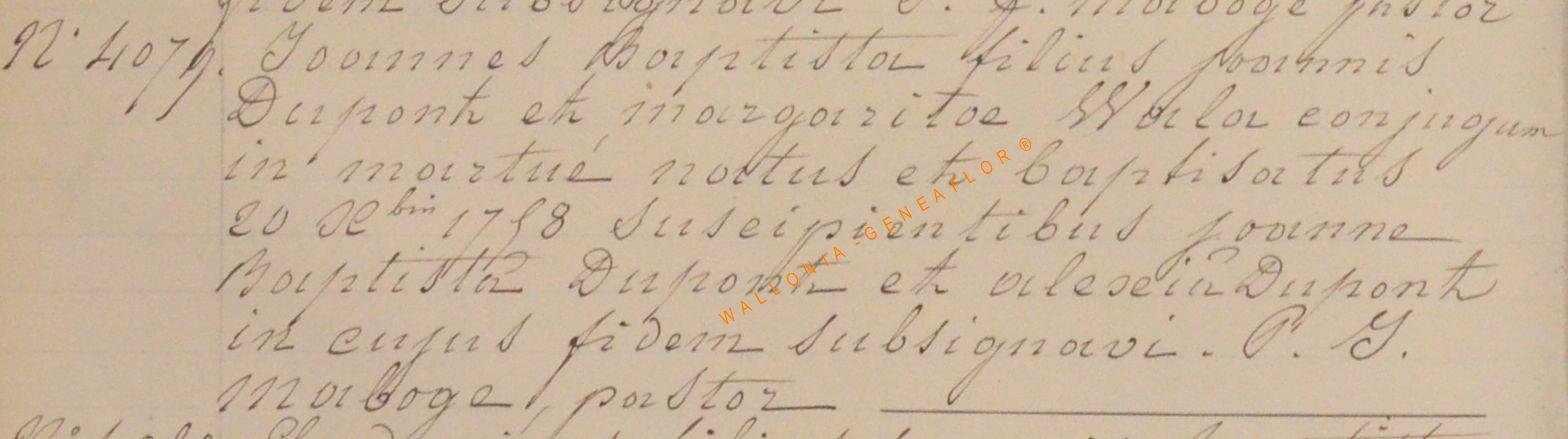 fidem subsignavi P. J. Maboge pastor
N° 4079. Joannes Baptista filius joannis
Dupont et margaritae Wala conjugum
in martué natus et baptisatus
20 Xbris 1758 suscipientibus joanne
Baptista Dupont et alexia Dupont
in cujus fidem subsignavi. P. J.
Maboge, pastor
WALLONIA-GENEAFLOR ®